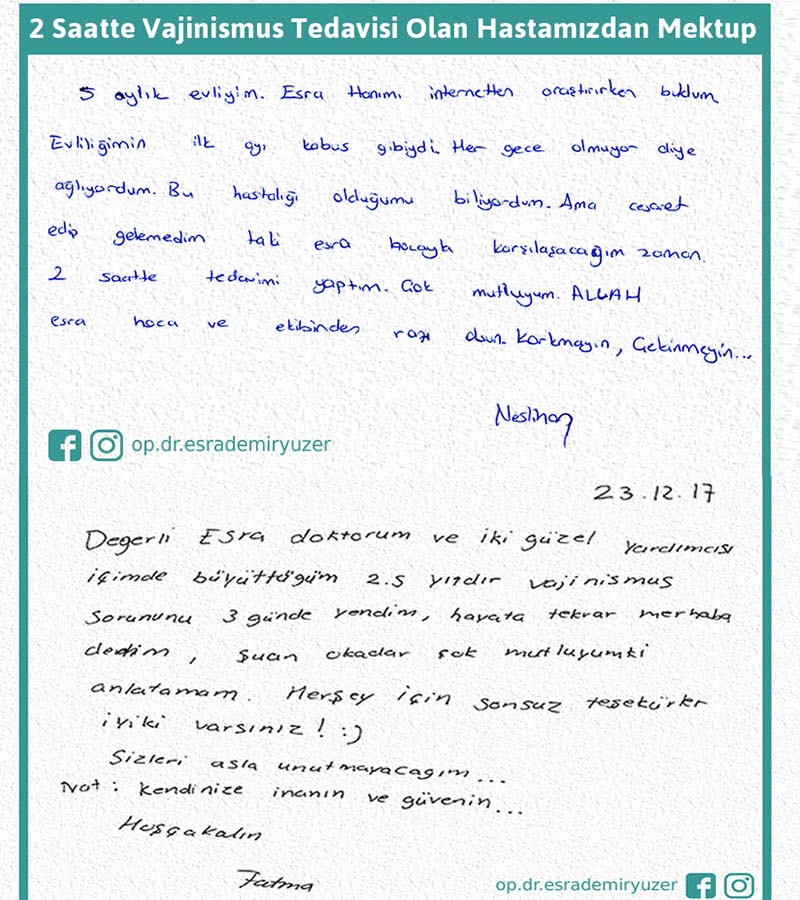 2 Saatte Vajinismus Tedavisi Olan Hastamızdan Mektup
5 aylık evliyim. Esra Hanımı internetten araştırırken buldum
Evliliğimin ilk ayı kabus gibiydi. Her gece olmuyor diye
ağlıyordum. Bu hastalığı olduğumu biliyordum. Ama cesaret
edip gelemedim taki esra hocayla karşılaşacağım zaman.
2 saatte tedavimi yaptım. Çok mutluyum. ALLAH
esra hoca ve ekibinden razı olsun. Korkmayın, Çekinmeyin...
Neslihan
op.dr.esrademiryuzer
23.12.17
Değerli Esra doktorum ve iki güzel yardımcısı
içimde büyüttüğüm 2.5 yıldır vajinismus
sorununu 3 günde yendim, hayata tekrar merhaba
dedim, şuan okadar çok mutluyumki
anlatamam. Herşey için sonsuz teşekürler
iyiki varsınız! :)
Sizleri asla unutmayacağım...
Not: Kendinize inanın ve güvenin...
Hoşçakalın
Fatma
op.dr.esrademiryuzer